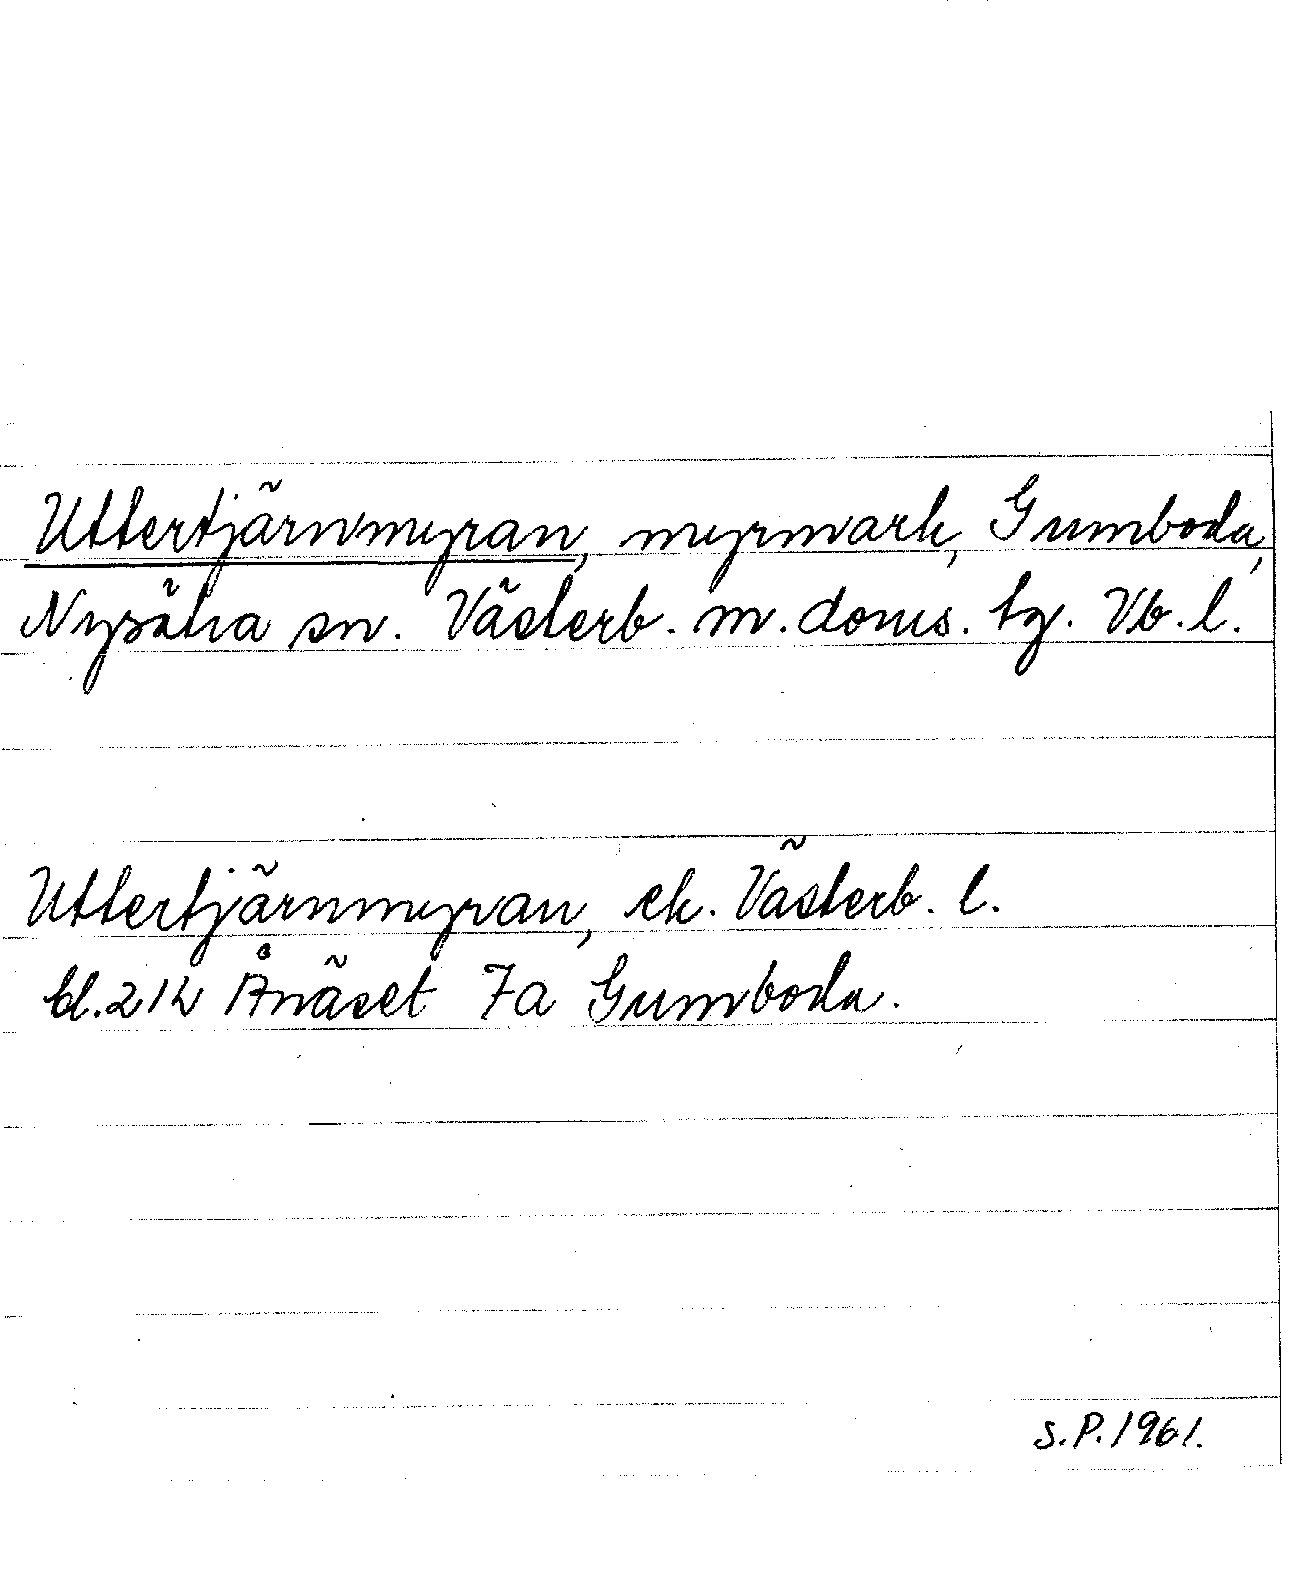 Uttertjärnmyran, myrmark, Gumboda,
Nysätra sn. Västerb. m. doms. tg. Vb. l.
Uttertjärnmyran, ek. Västerb. l.
bl. 21k Ånäset 7a Gumboda.
S.P. 1961.